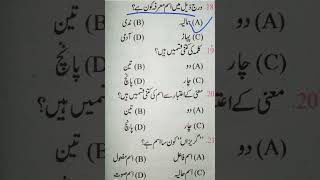 18. درج ذیل میں اسم معرفہ کون ہے؟
(A) ہمالیہ (B) ندی
(C) پہاڑ (D) آدمی
19. کلمے کی کتنی قسمیں ہیں؟
(A) دو (B) تین
(C) چار (D) پانچ
20. معنی کے اعتبار سے اسم کی کتنی قسمیں ہیں؟
(A) دو (B) تین
(C) چار (D) پانچ
21. "گریزاں" کون سا اسم ہے؟
(A) اسم فاعل (B) اسم مفعول
(C) اسم حالیہ (D) اسم صوت